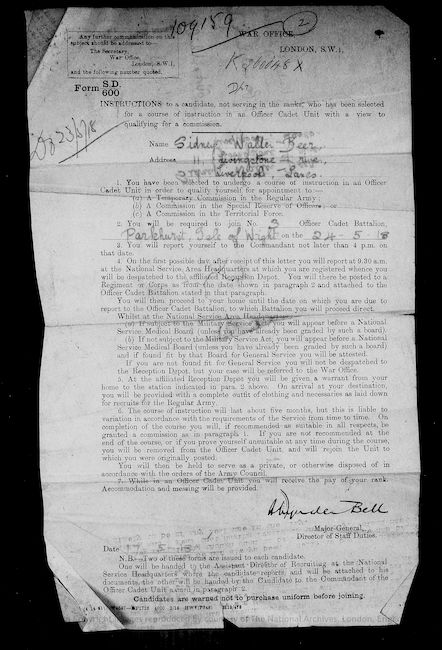 109159
2
Any further communication on this
subject should be addressed to—
The Secretary,
War Office,
London, S.W.1,
and the following number quoted.
WAR OFFICE,
LONDON, S.W.1,
Form S.D.
600
INSTRUCTIONS to a candidate, not serving in the ranks, who has been selected
for a course of instruction in an Officer Cadet Unit with a view to
qualifying for a commission.
Name Sidney Walter Beer
Address 11, Livingstone Drive,
Liverpool, Lancs.
1. You have been selected to undergo a course of instruction in an Officer
Cadet Unit in order to qualify yourself for appointment to—
(a) A Temporary Commission in the Regular Army;
(b) A Commission in the Special Reserve of Officers; or
(c) A Commission in the Territorial Force.
2. You will be required to join No. 3 Officer Cadet Battalion,
Parkhurst, Isle of Wight on the 24-5-18
3. You will report yourself to the Commandant not later than 4 p.m. on
that date.
4. On the first possible day after receipt of this letter you will report at 9.30 a.m.
at the National Service Area Headquarters at which you are registered whence you
will be despatched to the affiliated Reception Depot. You will there be posted to a
Regiment or Corps as from the date shown in paragraph 2 and attached to the
Officer Cadet Battalion stated in that paragraph.
You will then proceed to your home until the date on which you are due to
report to the Officer Cadet Battalion, to which Battalion you will proceed direct.
Whilst at the National Service Area Headquarters
(a) If subject to the Military Service Act, you will appear before a National
Service Medical Board (unless you have already been graded by such a board).
(b) If not subject to the Military Service Act, you will appear before a National
Service Medical Board (unless you have already been graded by such a board) and
if found fit by that Board for General Service you will be attested.
If you are not found fit for General Service you will not be despatched to
the Reception Depot, but your case will be referred to the War Office.
5. At the affiliated Reception Depôt you will be given a warrant from your
home to the station indicated in para. 2 above. On arrival at your destination,
you will be provided with a complete outfit of clothing and necessaries as laid down
for recruits for the Regular Army.
6. The course of instruction will last about five months, but this is liable to
variation in accordance with the requirements of the Service from time to time. On
completion of the course you will, if recommended as suitable in all respects, be
granted a commission as in paragraph 1. If you are not recommended at the
end of the course, or if you prove yourself unsuitable at any time during the course,
you will be removed from the Officer Cadet Unit, and will rejoin the Unit to
which you were originally posted.
You will then be held to serve as a private, or otherwise disposed of in
accordance with the orders of the Army Council.
7. While in an Officer Cadet Unit you will receive the pay of your rank.
Accommodation and messing will be provided.
Bell
Major-General,
Director of Staff Duties.
Date 17-5-18
N.B.—Two of these forms are issued to each candidate.
One will be handed to the Assistant Director of Recruiting at the National
Service Headquarters where the candidate reports, and will be attached to his
documents, the other will be handed by the Candidate to the Commandant of the
Officer Cadet Unit named in paragraph 2.
Candidates are warned not to purchase uniform before joining.
of The National Archives, London, England